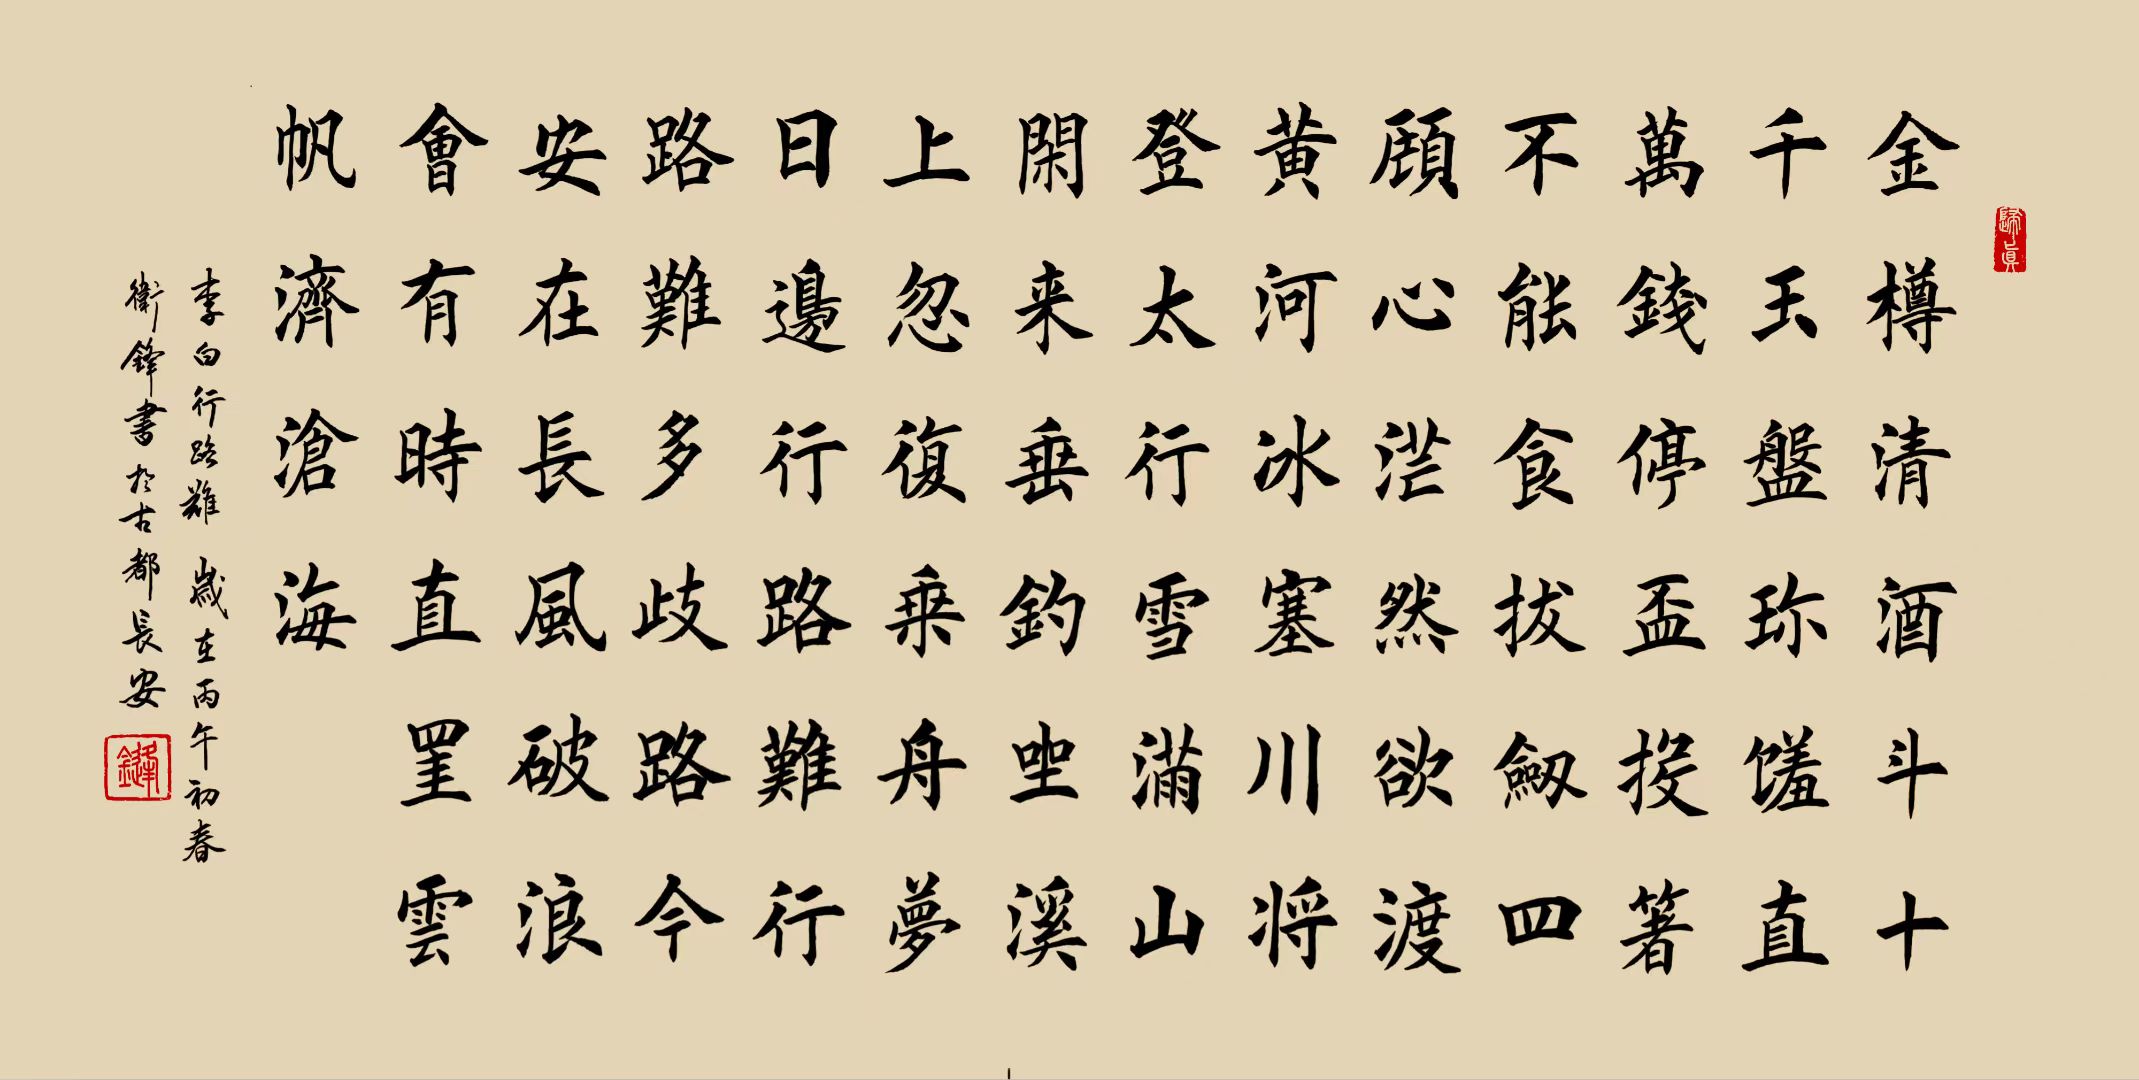 歸真
金樽清酒斗十
千玉盤珎馐直
萬錢停盃投箸
不能食拔劒四
顧心茫然欲渡
黃河冰塞川将
登太行雪滿山
閑来垂釣坐溪
上忽復乗舟夢
日邊行路難行
路難多歧路今
安在長風破浪
會有時直罣雲
帆濟滄海
李白行路難 歲在丙午初春
衛鋒書於古都長安
鋒